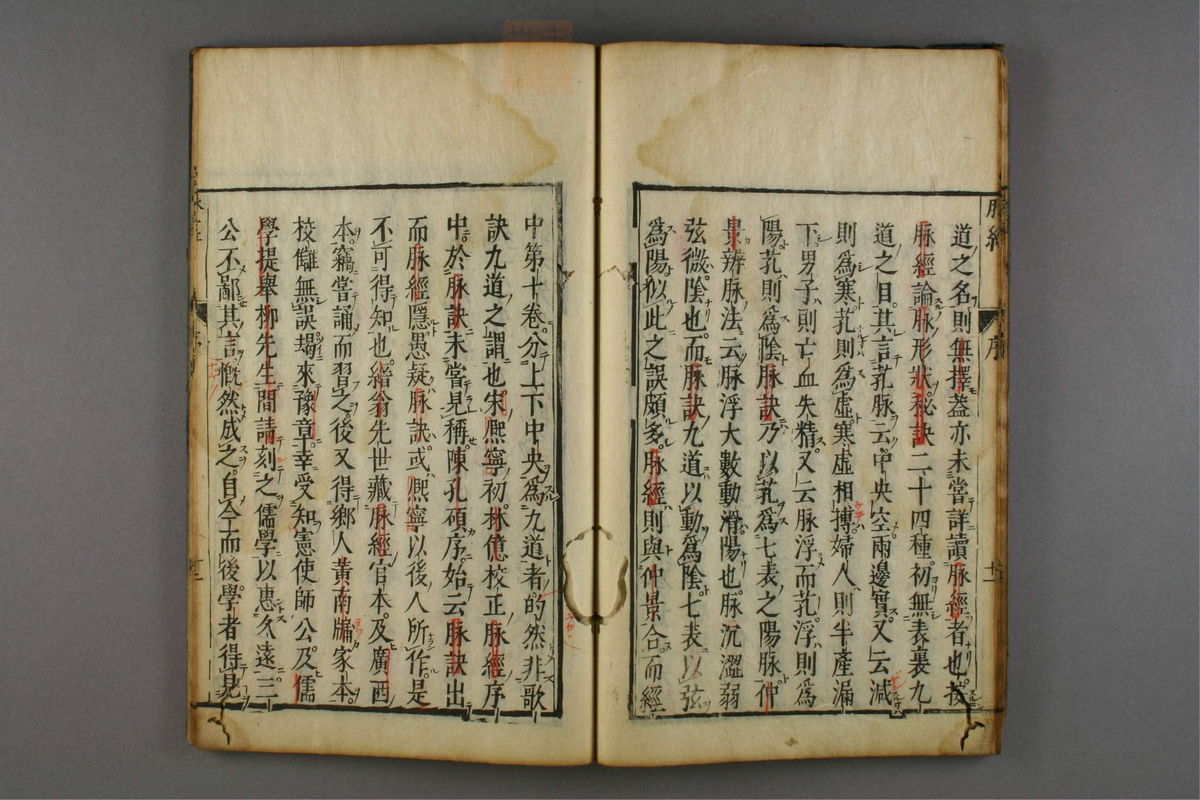 脉經
序
道之名則無擇蓋亦未嘗詳讀脉經者也按
脉經論脉形狀秘訣二十四種初無表裏九
道之目其言芤脉云中央空兩邊實又云減
則爲寒芤則爲虛寒虛相搏婦人則半產漏
下男子則亡血失精又云脉浮而芤浮則爲
陽芤則爲陰脉訣乃以芤爲七表之陽脉仲
景辨脉法云脉浮大數動滑陽也脉沉澀弱
弦微陰也而脉訣九道以動爲陰七表以弦
爲陽似此之誤頗多脉經則與仲景合而經
中第十卷分上下中央爲九道者的然非歌
訣九道之謂也宋熈寧初林億校正脉經序
中於脉訣未嘗見稱陳孔碩序始云脉訣出
而脉經隱愚疑脉訣或熈寧以後人所作是
不可得知也縉翁先世藏脉經官本及廣西
本竊嘗誦而習之後又得鄉人黃南牖家本
校讎無誤朅來豫章幸受知憲使師公及儒
學提舉柳先生間請刻之儒學以惠久遠三
公不鄙其言慨然成之自今而後學者得見